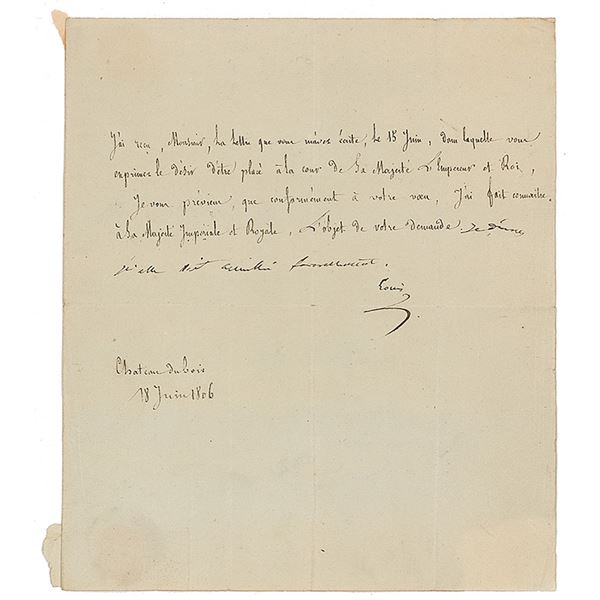 J'ai reçu, Monsieur, la lettre que vous m'avez écrite, le 15 Juin, dans laquelle vous
exprimes le désir d'être placé à la cour de Sa Majesté L'Empereur et Roi,
Je vous préviens, que conformément à votre vœu, J'ai fait connaitre
à Sa Majesté Impériale et Royale, L'objet de votre demande je désire
qu'elle soit accueillie favorablement.
Louis
Chateau du bois
18 Juin 1806